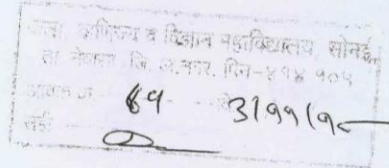 कला, वाणिज्य व विज्ञान महाविद्यालय, सोनई
ता. नेवासा जि. अ.नगर. पिन-४१४ १०५
आवक जं. ६१ 3/११/१८
सही